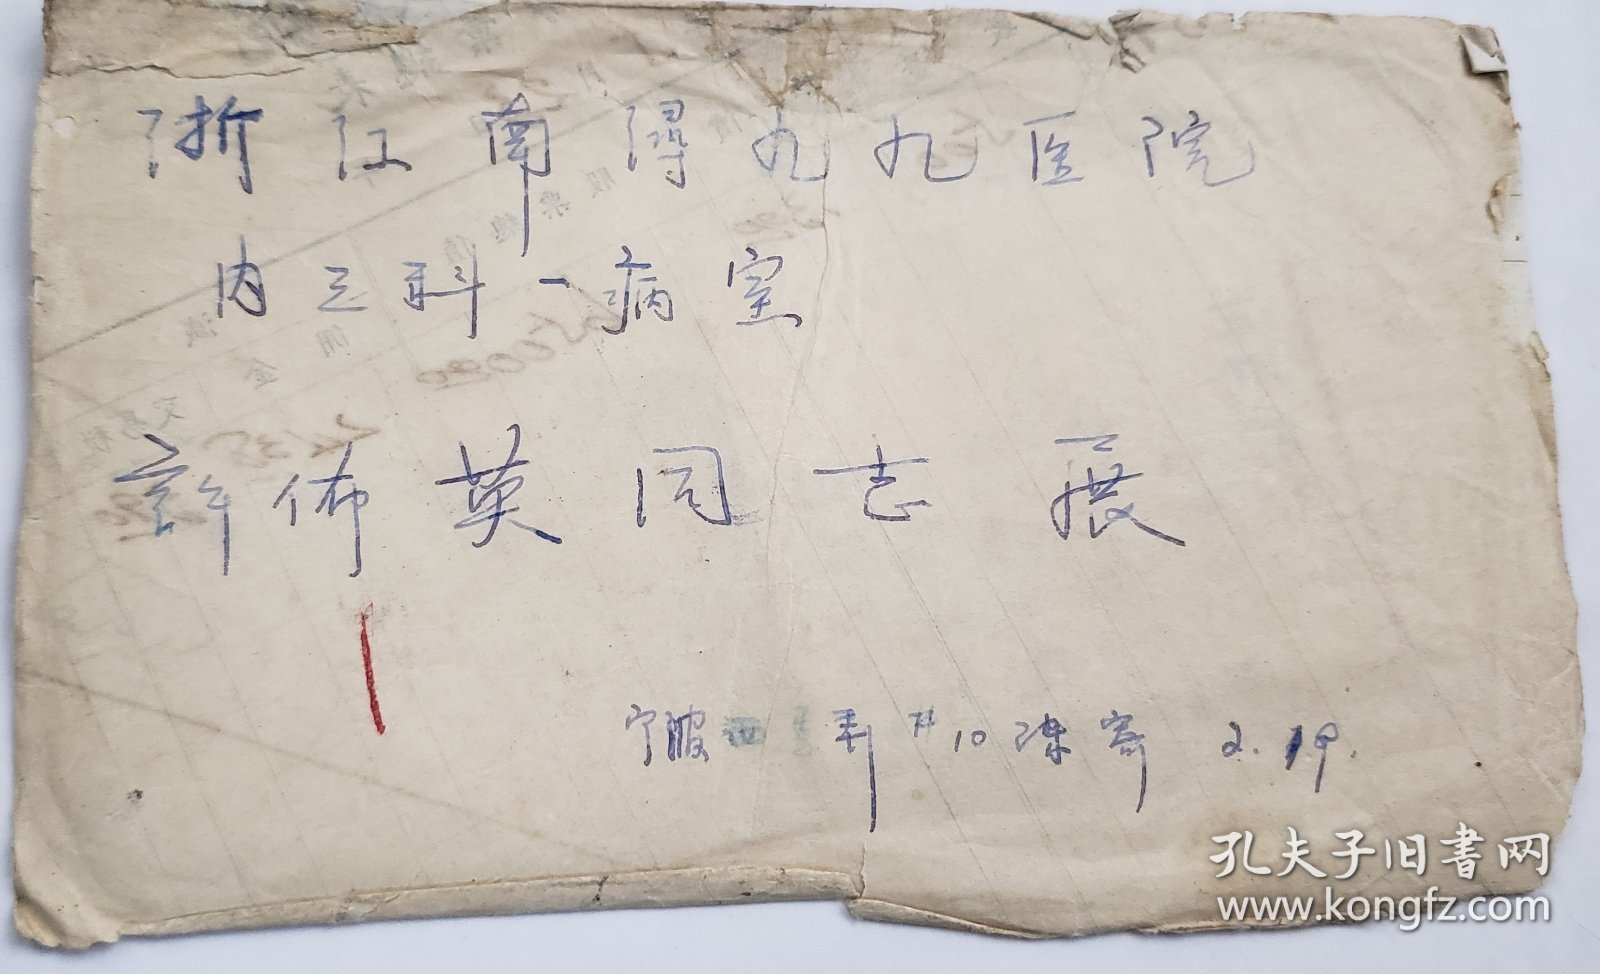 浙江南浔九九医院
内三科一病室
许佈英同志展
宁波西 弄#10陈寄 2.19.
孔夫子旧書网
www.kongfz.com